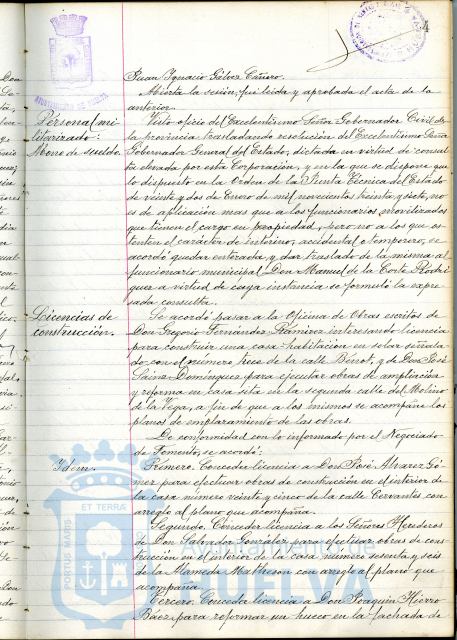 Juan Ignacio Gálvez Cañero.
Abierta la sesión, fué leida y aprobada el acta de la
anterior.
Personal mi-
literizado:
Abono de sueldo
Visto oficio del Excelentísimo Señor Gobernador Civil de
la provincia trasladando resolución del Excelentísimo Señor
Gobernador General del Estado, dictada en virtud de consul-
ta elevada por esta Corporación, y en la que se dispone que
lo dispuesto en la Orden de la Junta Técnica del Estado
de veinte y dos de Enero de mil novecientos treinta y siete, no
es de aplicación mas que a los funcionarios movilizados
que tienen el cargo en propiedad, pero no a los que os-
tenten el carácter de interino, accidental o temporero, se
acordó quedar enterada y dar traslado de la misma al
funcionario municipal Don Manuel de la Corte Rodrí-
guez a virtud de cuya instancia se formuló la expre-
sada consulta.
Licencias de
construcción.
Se acordó pasar a la Oficina de Obras escritos de
Don Gregorio Fernández Ramírez interesando licencia
para construir una casa-habitación en solar señala-
do con el número trece de la calle Bénot, y de Don José
Sainz Domínguez para ejecutar obras de ampliación
y reforma en casa sita en la segunda calle del Molino
de la Vega, a fin de que a los mismos se acompañe los
planos de emplazamiento de las obras.
De conformidad con lo informado por el Negociado
de Fomento, se acordó:
Idem.
Primero. Conceder licencia a Don José Alvarez Gó-
mez para efectuar obras de construcción en el interior de
la casa número veinte y cinco de la calle Cervantes con
arreglo al plano que acompaña.
Segundo. Conceder licencia a los Señores Herederos
de Don Salvador González para efectuar obras de cons-
trucción en el interior de la casa número sesenta y seis
de la Alameda Matheson con arreglo al plano que
acompaña.
Tercero. Conceder licencia a Don Joaquín Hierro
Báez para reformar un hueco en la fachada de
AYUNTAMIENTO DE HUELVA
PORTUS MARIS
ET TERRAE
HUELVA